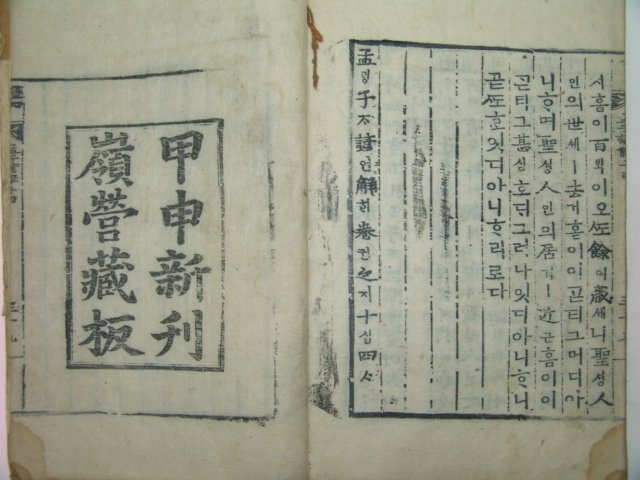 서흠이百ᄇᆡᆨ이오ᄯᅩ餘여歲셰니聖셩人
인의世셰ㅣ去거홈이이ᄀᆞᆮ티그머디아
니ᄒᆞ며聖셩人인의居거ㅣ近근홈이이
ᄀᆞᆮ티그甚심호ᄃᆡ그러나잇디아니ᄒᆞ니
곧ᄯᅩᄒᆞᆫ잇디아니ᄒᆞ리로다
孟ᄆᆡᆼ子ᄌᆞ諺언解ᄒᆡ卷권之지十십四ᄉᆞ
甲申新刊
嶺營藏板